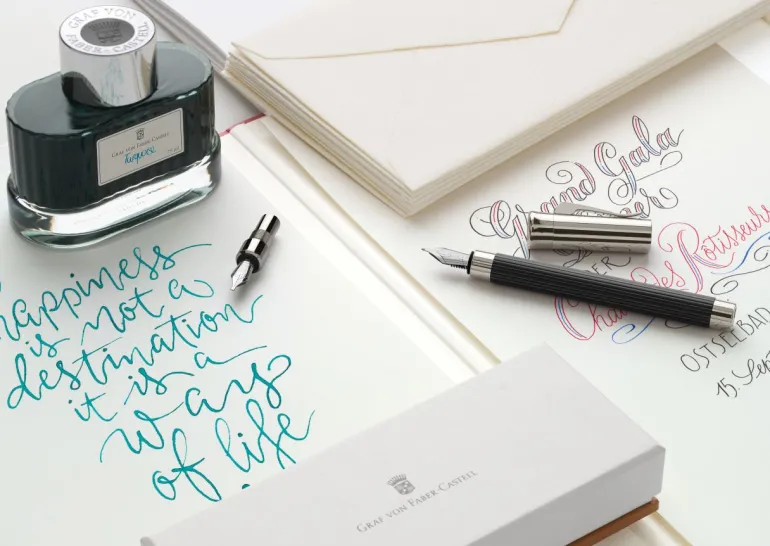 GRAF VON
FABER-CASTELL
GRAF VON FABER-CASTELL
Turquoise
75 ml
happiness
is not a
destination
it is a
way
of life
Grand Gala
Chaîne des Rôtisseurs
OSTSEEBAD
15. Sept
GRAF VON FABER-CASTELL